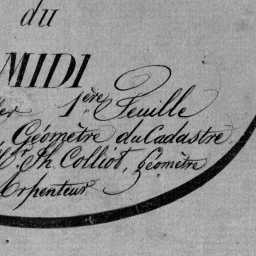 du
MIDI
er 1ère Feuille
Géomètre du Cadastre
Mr. Th Colliot, Géomètre
Arpenteur